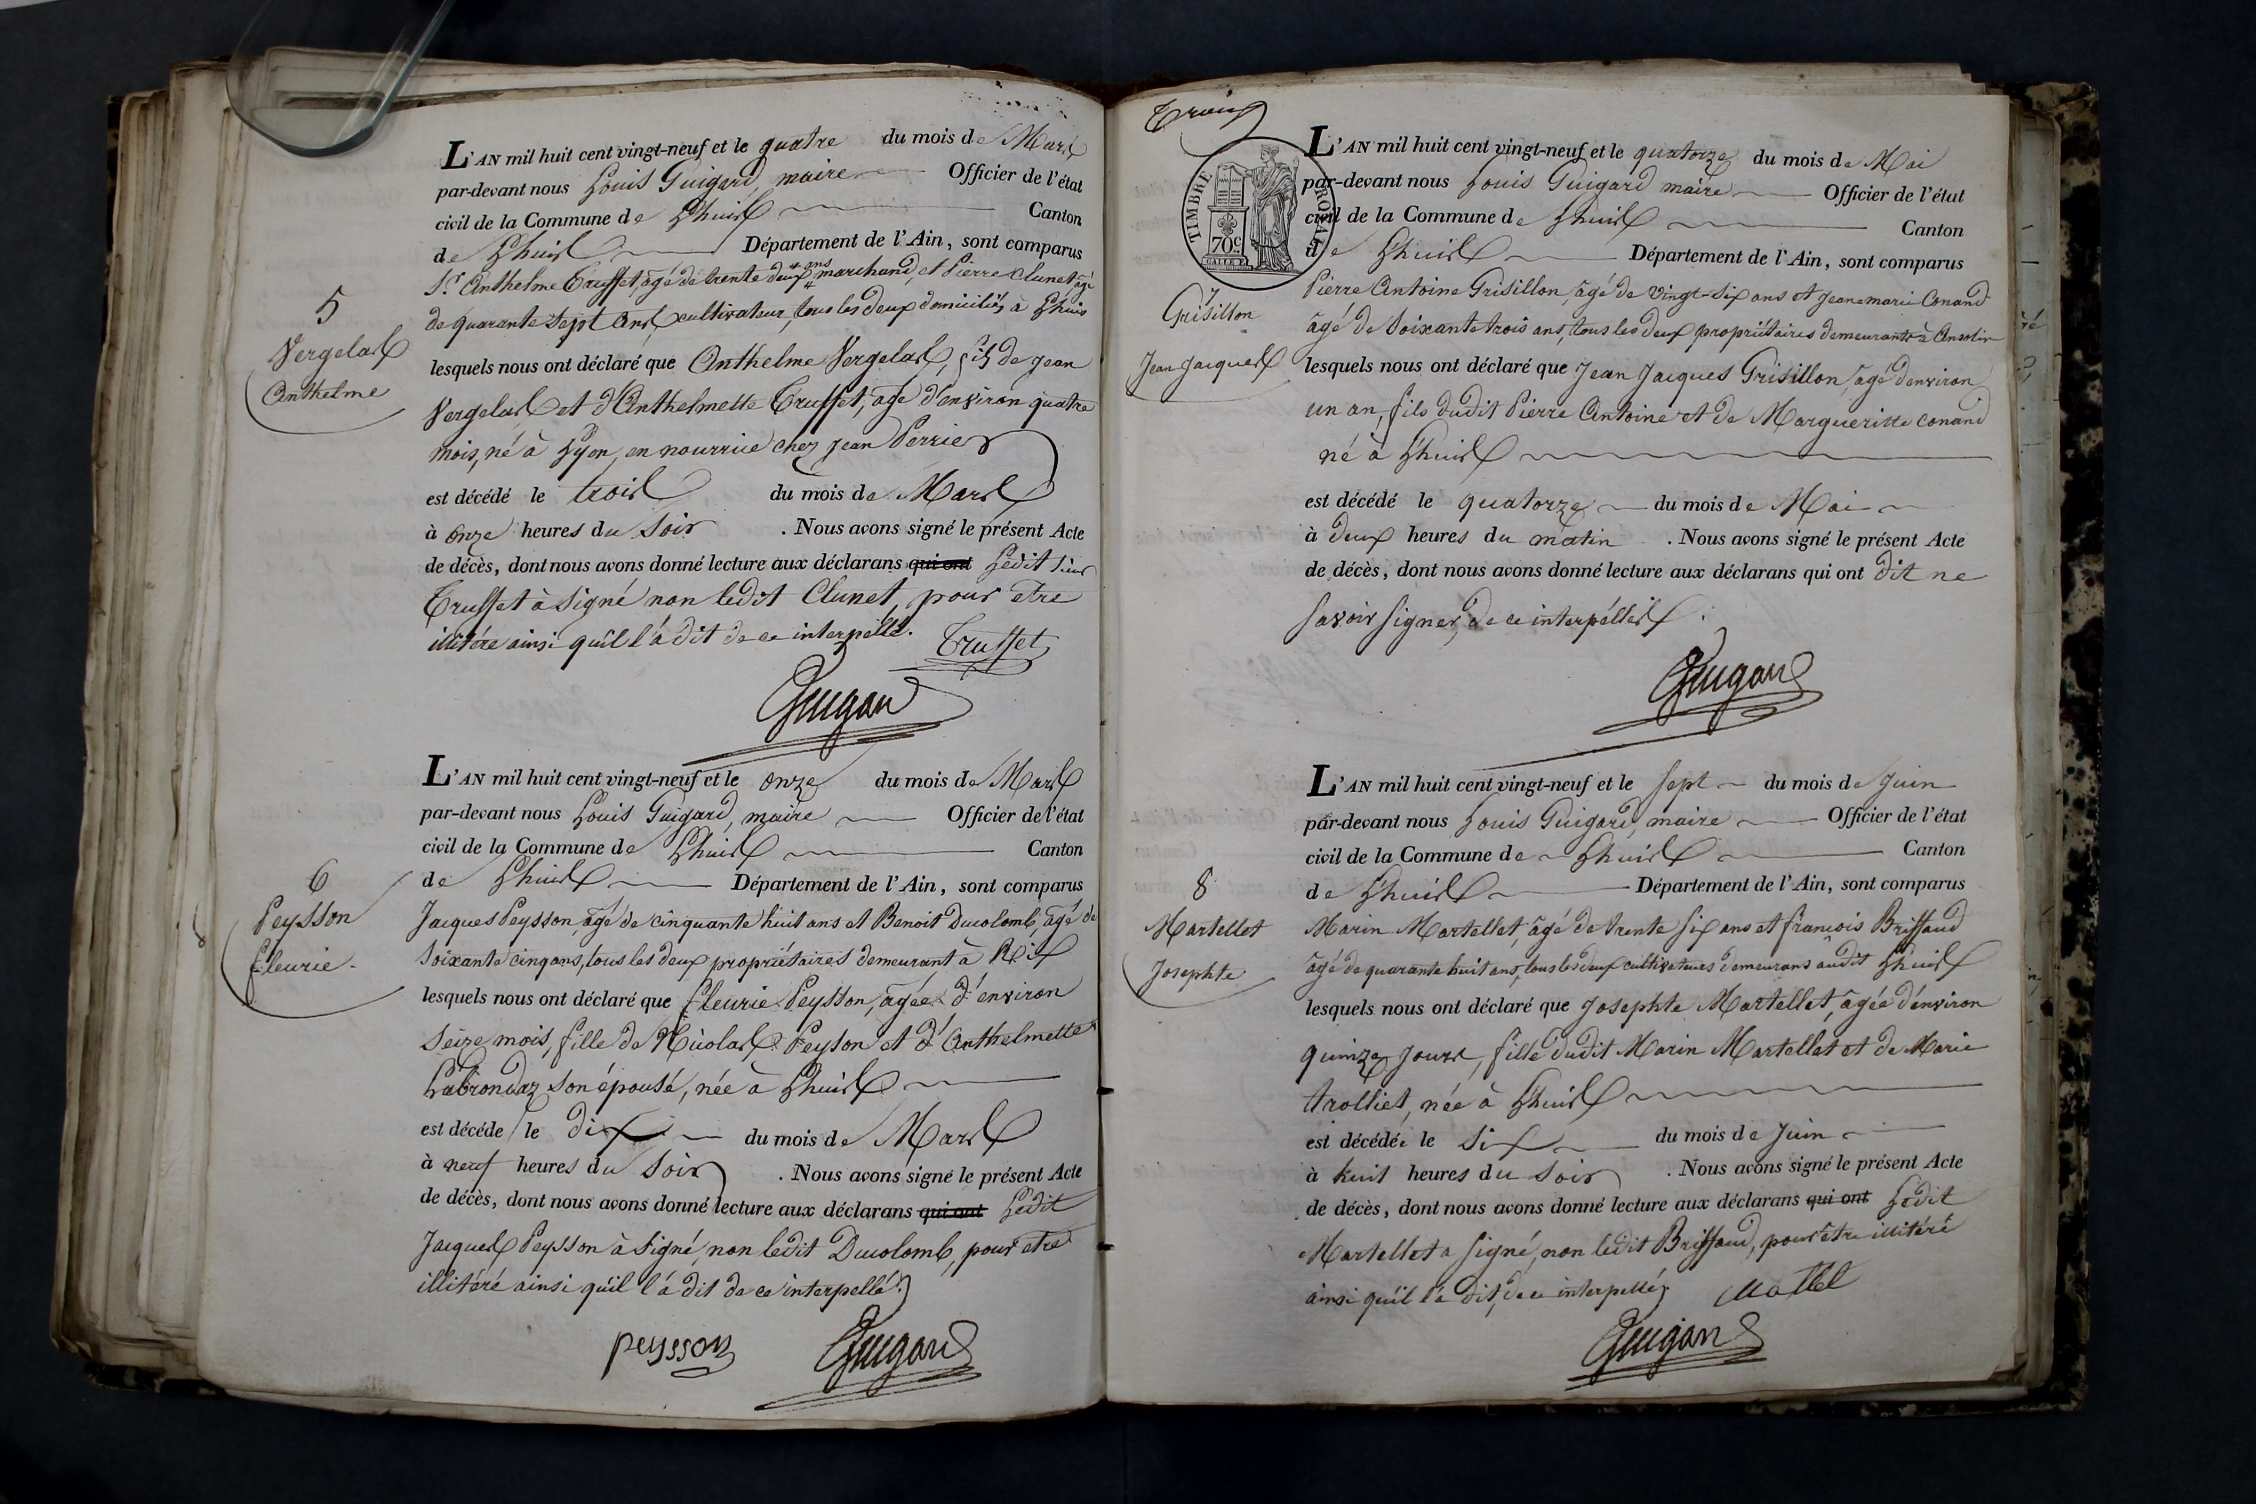 L'AN mil huit cent vingt-neuf et le quatre du mois de Mars
par-devant nous Louis Guigard, maire Officier de l'état
civil de la Commune de Lhuis Canton
de Lhuis Département de l'Ain, sont comparus
Sr. Anthelme Truffet, âgé de trente deux ans marchand, et Pierre Clunet, âgé
5
de quarante sept ans, cultivateur, tous les deux domiciliés à Lhuis
Vergelas
Anthelme
lesquels nous ont déclaré que Anthelme Vergelas, fils de Jean
Vergelas et d'Anthelmette Truffet, âgé d'environ quatre
mois, né à Lyon, en nourrice chez Jean Perrier
est décédé le trois du mois de Mars
à onze heures du soir . Nous avons signé le présent Acte
de décès, dont nous avons donné lecture aux déclarans qui ont Ledit sieur
Truffet à signé non ledit Clunet, pour etre
illitéré ainsi qu'il l'á dit de ce interpellé.
Truffet
Guigard
L'AN mil huit cent vingt-neuf et le onze du mois de Mars
par-devant nous Louis Guigard, maire Officier de l'état
civil de la Commune de Lhuis Canton
de Lhuis Département de l'Ain, sont comparus
6
Peysson
fleurie.
Jacques Peysson, âgé de cinquante huit ans et Benoit Ducolomb, âgé de
soixante cinq ans, tous les deux propriétaires demeurant à Rix
lesquels nous ont déclaré que fleurie Peysson, âgée d'environ
seize mois, fille de Nicolas Peyson et d'Anthelmette
Labrondaz son épousé, née à Lhuis
est décédé le dix du mois de Mars
à neuf heures du soir . Nous avons signé le présent Acte
de décès, dont nous avons donné lecture aux déclarans qui ont Ledit
Jacques Peysson à signé, non ledit Ducolomb, pour etre
illitéré ainsi qu'il l'á dit de ce interpellé.
peysson Guigard
TIMBRE ROYAL
70c
L'AN mil huit cent vingt-neuf et le quatorze du mois de Mai
par-devant nous Louis Guigard maire Officier de l'état
civil de la Commune de Lhuis Canton
de Lhuis Département de l'Ain, sont comparus
7
Grisillon
Jean Jacques
Pierre Antoine Grisillon, âgé de vingt-six ans et Jeanemarie Conand
âgé de soixante trois ans, tous les deux propriétaires demeurants à Ansolin
lesquels nous ont déclaré que Jean Jacques Grisillon, âgé d'environ
un an, fils dudit Pierre Antoine et de Margueritte Conand
né à Lhuis
est décédé le quatorze du mois de Mai
à deux heures du matin . Nous avons signé le présent Acte
de décès, dont nous avons donné lecture aux déclarans qui ont dit ne
savoir signer, de ce interpéllés.
Guigard
L'AN mil huit cent vingt-neuf et le sept du mois de Juin
par-devant nous Louis Guigard, maire Officier de l'état
civil de la Commune de Lhuis Canton
de Lhuis Département de l'Ain, sont comparus
8
Martellet
Josephte
Marin Martellet, âgé de trente six ans et françois Briffaud
âgé de quarante huit ans, tous les deux cultivateurs demeurans audit Lhuis
lesquels nous ont déclaré que Josephte Martellet, âgée d'environ
quinze jours, fille dudit Marin Martellet et de Marie
trolliet, née à Lhuis
est décédée le six du mois de Juin
à huit heures du soir . Nous avons signé le présent Acte
de décès, dont nous avons donné lecture aux déclarans qui ont Ledit
Martellet a signé, non ledit Briffaud, pour être illitéré
ainsi qu'il l'a dit, de ce interpellé.
Guigard